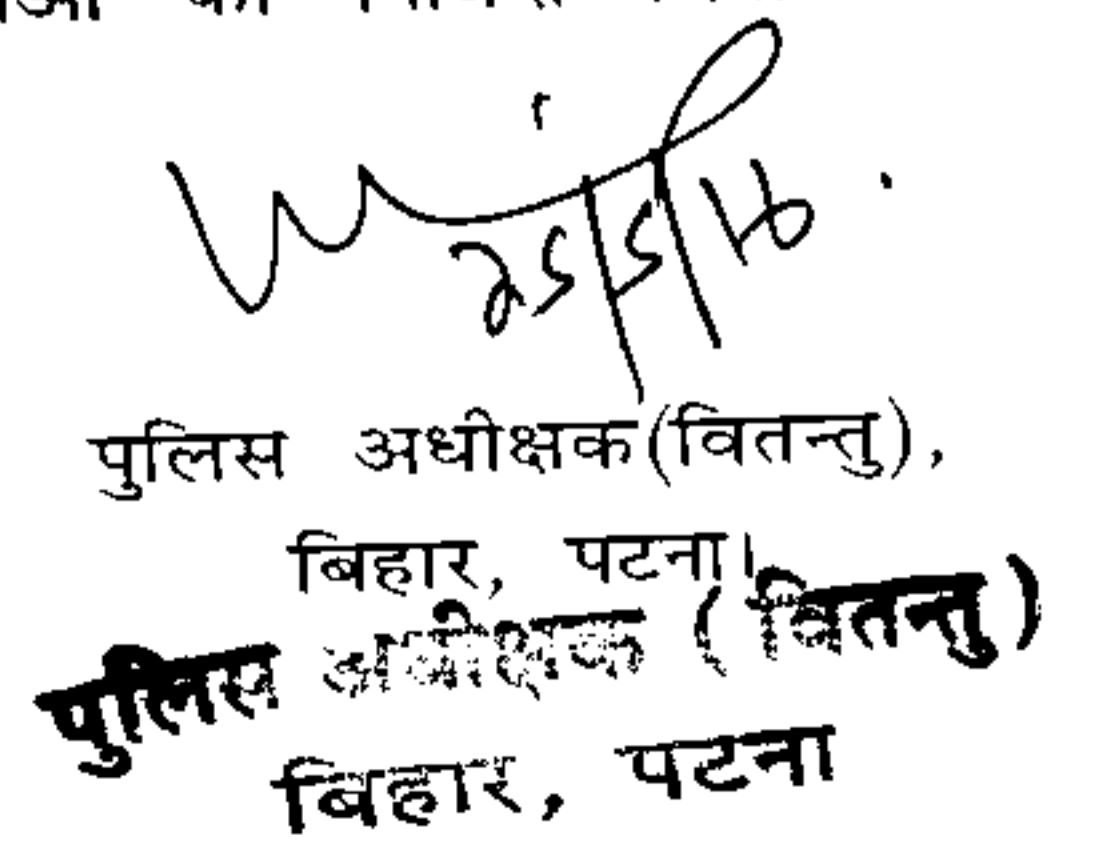 की
25/5/16
पुलिस अधीक्षक(वितन्तु),
बिहार, पटना।
पुलिस अधीक्षक (वितन्तु)
बिहार, पटना